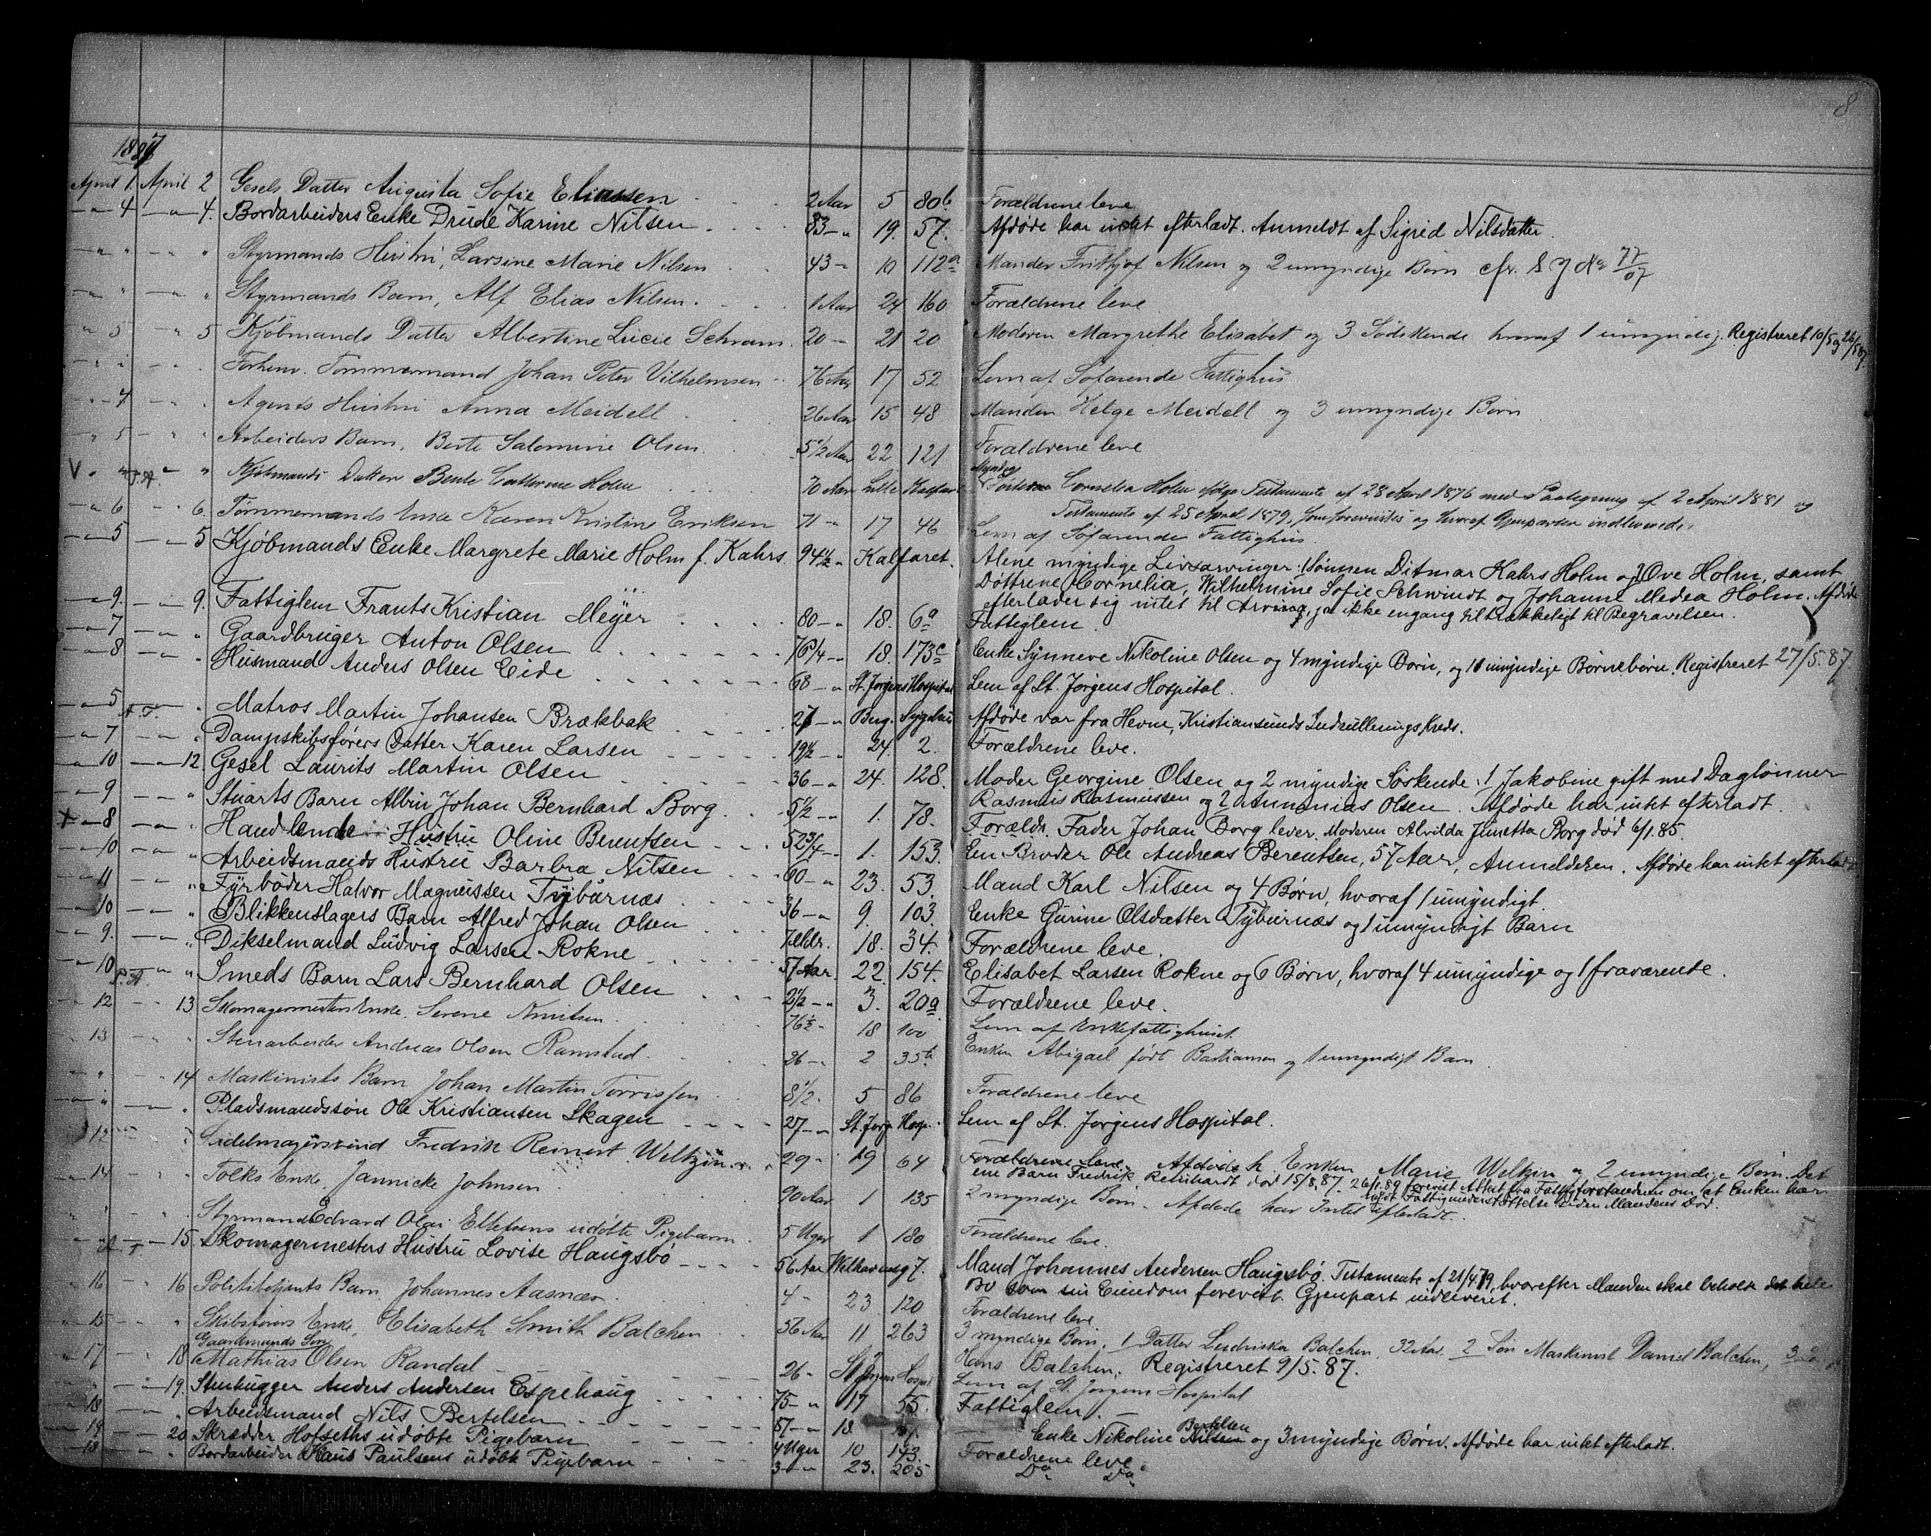 8
1887
April 1. April 2 Gesels Datter Augusta Sofie Eliassen 2 Aar 5 80b Forældrene leve
4 4. Bordarbeiders Enke Drude Karine Nilsen 83 19. 57. Afdøde har intet efterladt. Anmeldt af Sigrid Nilsdatter.
Styrmands Hustru, Larsine Marie Nilsen 43 10 112a Manden Frithjof Nilsen og 2 umyndige Børn cfr. S J No 77/07
Styrmands Barn, Alf Elias Nilsen. 1 Aar 24 160 Forældrene leve
5 5 Kjøbmands Datter Albertine Lucie Schram. 20 21 20 Moderen Margrethe Elisabet og 3 Södskende hvoraf 1 umyndig. Registreret 10/5 og 26/5 87.
Forhenv. Tømmermand Johan Peter Vilhelmsen 76 Aar 17 52 Lem af Söfarende Fattighus
4 Agents Hustru Anna Meidell 26 Aar 15 48 Manden Helge Meidell og 3 umyndige Børn
5 Arbeiders Barn, Berte Salomine Olsen 5 1/2 Aar 22 121 Forældrene leve
V Kjöbmands Datter Bente Cathrine Holm 70 Aar Lille Kalfaret Myndig Søster Cornelia Holm ifølge Testamente af 28 April 1876 med Paategning af 2 April 1881 og
Testamente af 25 April 1879, som forevistes og hvoraf Gjenparten indleveredes.
6 6. Tømmermands Enke Karen Kristine Eriksen 71 17 46 Lem af Söfarende Fattighus.
5 5 Kjøbmands Enke Margrete Marie Holm f. Kahrs. 94 1/2 Kalfaret. Alene myndige Livsarvinger: Sønnen Ditmar Kahrs Holm og Ove Holm, samt
Døttrene Cornelia, Wilhelmine Sofie Schwindt og Johanne Medea Holm. Afdøde
efterlader sig intet til Arving, ja ikke engang tilstrækkeligt til Begravelsen.
9. 9. Fattiglem Frants Kristian Meyer 80 18. 6a Fattiglem.
7 Gaardbruger Anton Olsen 76 1/4 18. 173c Enke Synneve Nikoline Olsen og 4 myndige Børn, og 11 umyndige Børnebørn. Registreret 27/5.87.
8 Husmand Anders Olsen Eide 68 St. Jørgens Hospital Lem af St. Jørgens Hospital.
5 Matros Martin Johansen Brækbak 27 Berg. Sygehus Afdøde var fra Hevne, Kristiansunds Indrulleringskreds.
7 Dampskibsførers Datter Karen Larsen 19 1/2 24 2. Forældrene leve.
10 12. Gesel Laurits Martin Olsen 36 24. 128. Moder Georgine Olsen og 2 myndige Søskende: 1 Jakobine gift med Daglønner
Rasmus Rasmussen og 2 Annanias Olsen. Afdøde har intet efterladt.
9 Stuarts Barn Albin Johan Bernhard Borg. 5 1/2 1. 78. Foræld. Fader Johan Borg lever. Moderen Alvilda Junetta Borg død 6/1.85.
+ 8 Handlende Hustru Oline Berentsen 52 3/4 1. 153. En Broder Ole Andreas Berentsen, 57 Aar, Anmelderen. Afdøde har intet efterladt
10 Arbeidsmands Hustru Barbra Nilsen 60 23. 53. Mand Karl Nilsen og 4 Børn, hvoraf 1 umyndigt.
11 Fyrbøder Halvor Magnussen Tybürnæs 36 9. 103. Enke Gurine Olsdatter Tybürnæs og 1 umyndigt Barn
10 Blikkenslagers Barn Alfred Johan Olsen 18. 34. Forældrene leve.
9. Dikselmand Ludvig Larsen Rokne 57 Aar. 22. 154. Elisabet Larsen Rokne og 6 Børn, hvoraf 4 umyndige og 1 fraværende.
10 Smeds Barn Lars Bernhard Olsen 2 1/2 3. 20a Forældrene leve.
12 13. Skomagermesters Enke, Serene Knutsen 76 1/2 18 100 Lem af Enkefattighuset
13 Stenarbeider Andreas Olsen Ramstad. 26 2 35b Enken Abigael født Bastiansen og 1 umyndigt Barn
14 Maskinists Barn Johan Martin Torrissen 8 1/2. 5 86 Forældrene leve
Pladsmandssøn Ole Kristiansen Skagen 27 St. Jørg. Hosp. Lem af St. Jørgens Hospital.
12 Sadelmagersvend Fredrik Reinert Weltzin 29 19 64 Forældrene leve. Afdøde h. Enken Marie Weltzin og 2 umyndige Børn. Det
ene Barn Fredrik Reinhardt død 15/8.87. 26/1.89 forevist Attest fra Fattigforstanderen om, at Enken har
nydt Fattigunderstøttelse siden Mandens Død.
14 Tolks Enke, Jannicke Johnsen 90 Aar 1 135 2 myndige Børn. Afdøde har Intet efterladt.
Styrmand Edvard Olai Ellefsens udøbte Pigebarn 5 Uger 1 180 Forældrene leve.
15. Skomagermesters Hustru Lovise Haugsbø 56 Aar 7. Mand Johannes Andersen Haugsbø. Testamente af 21/4.79, hvorefter Manden skal beholde det hele
Bo som sin Eiendom forevist. Gjenpart indleveret.
16 16 Politibetjents Barn Johannes Aasnæs 4 23. 120 Forældrene leve
15 Skibsførers Enke, Elisabeth Smith Balchen 56 Aar 11 263 3 myndige Børn, 1 Datter Balchen, 32 Aar, 2 Søn Maskinist Daniel Balchen, 3
Hans Balchen, Registreret 9/5.87.
17 18 Gaardmands Søn Mathias Olsen Randal 26 St. Jørgens Hospital Lem af St. Jørgens Hospital
19. Stenhugger Anders Andersen Espehaug 75 17 55. Fattiglem.
18 Arbeidsmand Nils Bertelsen 57 18. Enke Nikoline Nilsen Bertelsen og 3 myndige Børn. Afdøde har intet efterladt.
19 20 Skrædder Hofseths udøbte Pigebarn 4 Uger 10 143. Forældrene leve
18 Bordarbeider Hans Paulsens udøbt Pigebarn 3 23. 205 Do Do